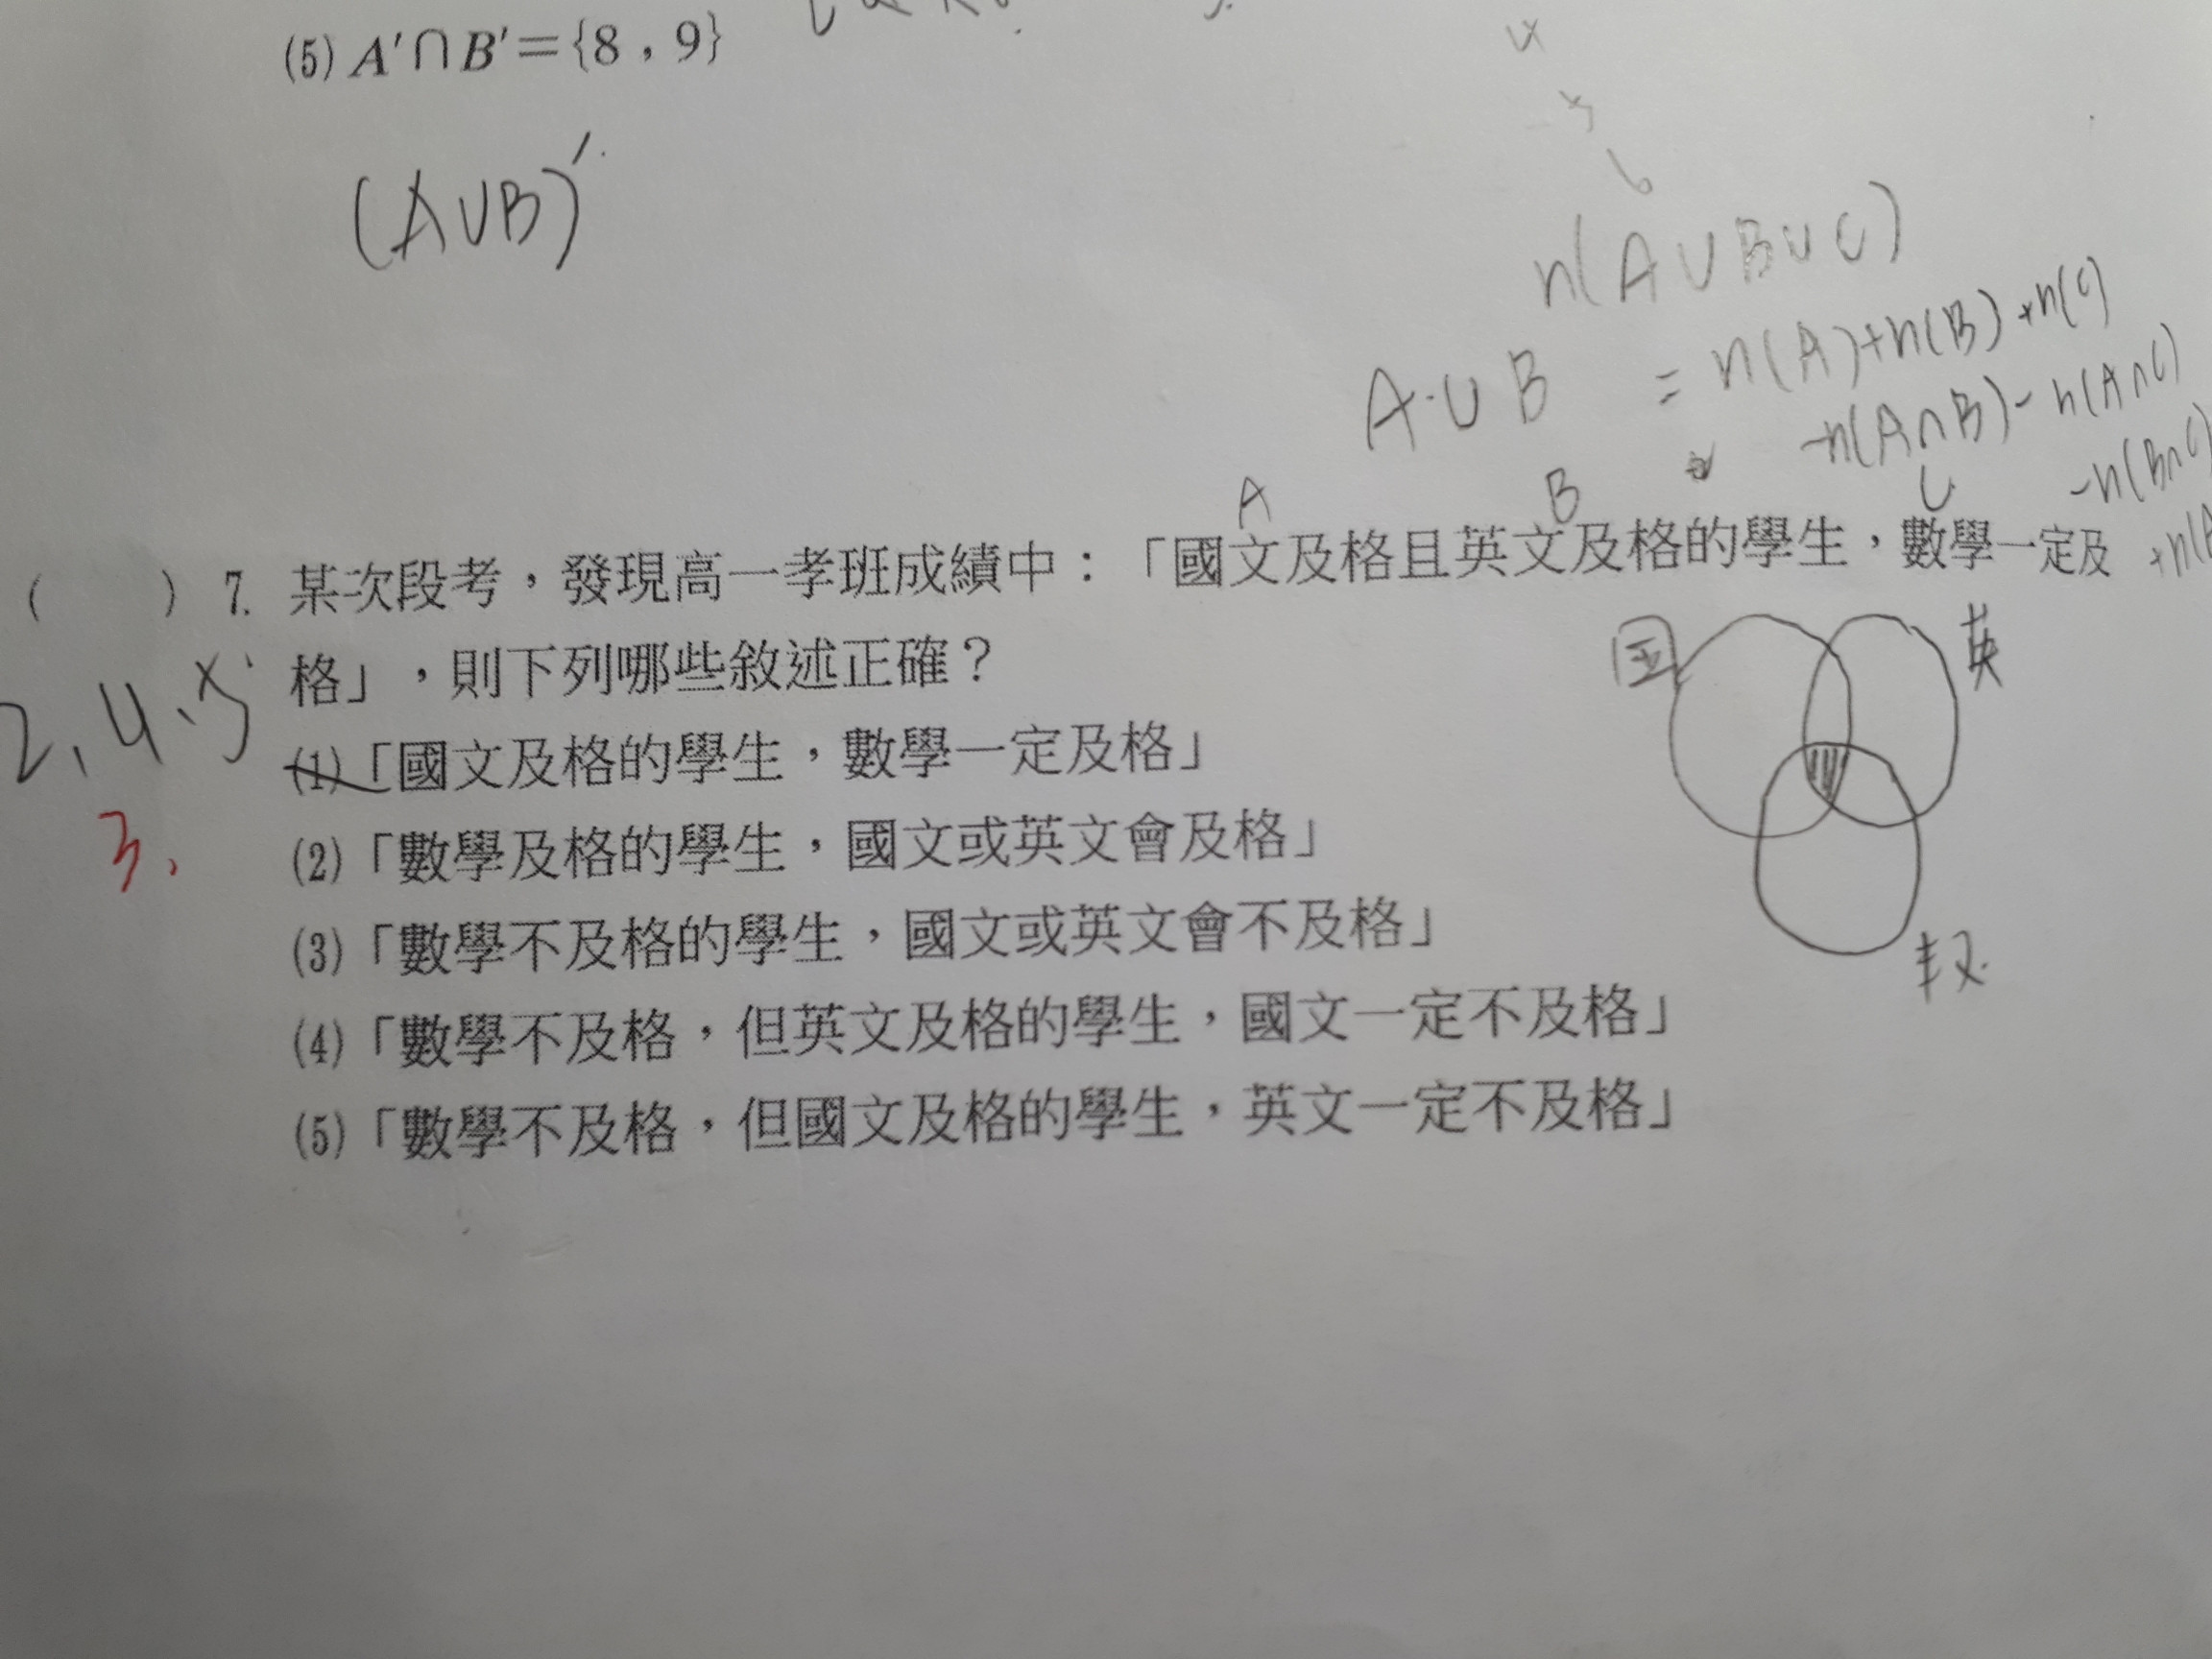 (5) A'∩B'={8，9}
(A∪B)'
n(A∪B∪C)
A∪B = n(A)+n(B)+n(C)
-n(A∩B)-n(A∩C)
-n(B∩C)
A B C
( ) 7. 某次段考，發現高一孝班成績中：「國文及格且英文及格的學生，數學一定及
格」，則下列哪些敘述正確？
2,4、5
3.
國
英
数
(1)「國文及格的學生，數學一定及格」
(2)「數學及格的學生，國文或英文會及格」
(3)「數學不及格的學生，國文或英文會不及格」
(4)「數學不及格，但英文及格的學生，國文一定不及格」
(5)「數學不及格，但國文及格的學生，英文一定不及格」